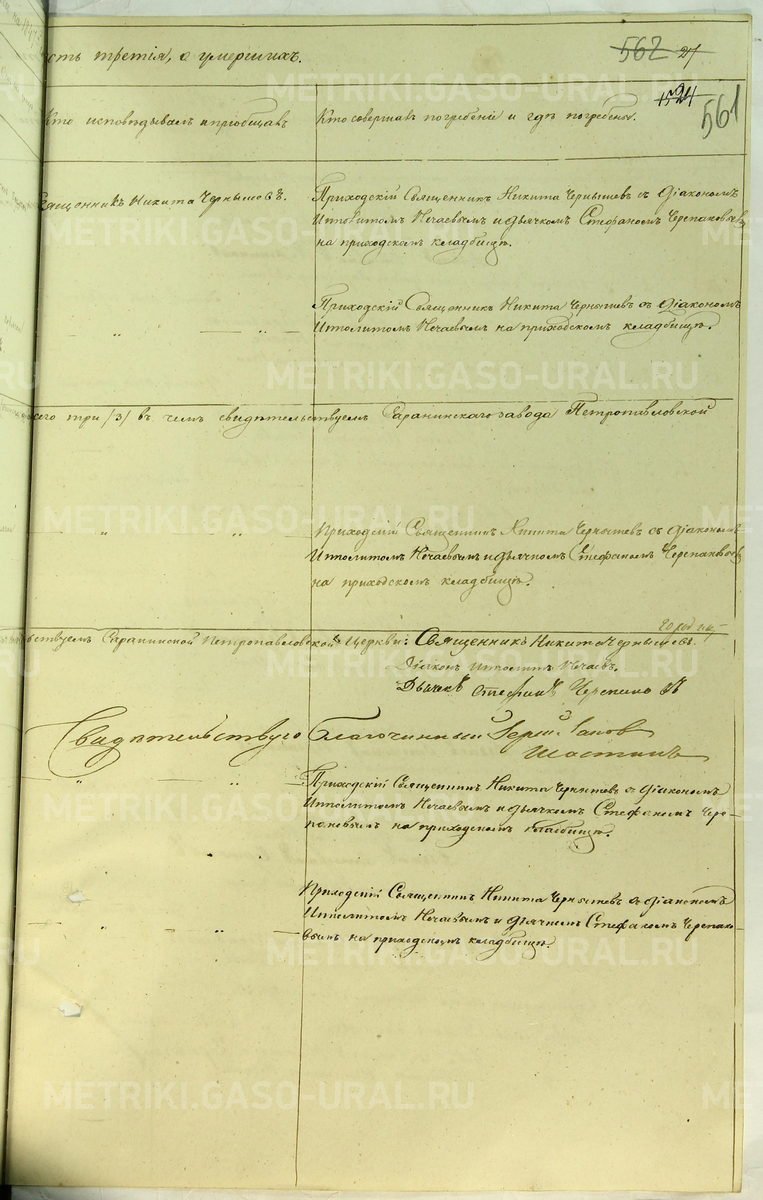 сть третія, о умершихъ.
562 27
1521
561
Кто исповѣдывалъ и пріобщалъ
Кто совершалъ погребеніе и гдѣ погребены.
Священникъ Никита Чернышовъ.
Приходскій Священникъ Никита Чернышевъ съ Діакономъ
Ипполитомъ Нечаевымъ и дьячкомъ Стефаномъ Черепановымъ
на приходскомъ кладбищѣ.
Приходскій Священникъ Никита Чернышевъ съ Діакономъ
Ипполитомъ Нечаевымъ на приходскомъ кладбищѣ.
сего три /3/ въ чемъ свидѣтельствуемъ Саранинскаго завода Петропавловской
Приходскій Священникъ Никита Чернышевъ съ Діакономъ
Ипполитомъ Нечаевымъ и дьячкомъ Стефаномъ Черепановымъ
на приходскомъ кладбищѣ.
ьствуемъ Саранинской Петропавловской Церкви: Священникъ Никита Чернышевъ.
Діаконъ Ипполитъ Нечаевъ.
Дьячекъ Стефанъ Черепановъ
Свидѣтельствую Благочинный Іерей Іаков
Шастинъ
Приходскій Священникъ Никита Чернышевъ съ Діакономъ
Ипполитомъ Нечаевымъ и дьячкомъ Стефаномъ Чере-
пановымъ на приходскомъ кладбищѣ.
Приходскій Священникъ Никита Чернышевъ съ Діакономъ
Ипполитомъ Нечаевымъ и Дьячкомъ Стефаномъ Черепано-
вымъ на приходскомъ кладбищѣ
METRIKI.GASO-URAL.RU